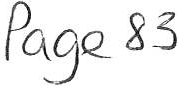 Page 83